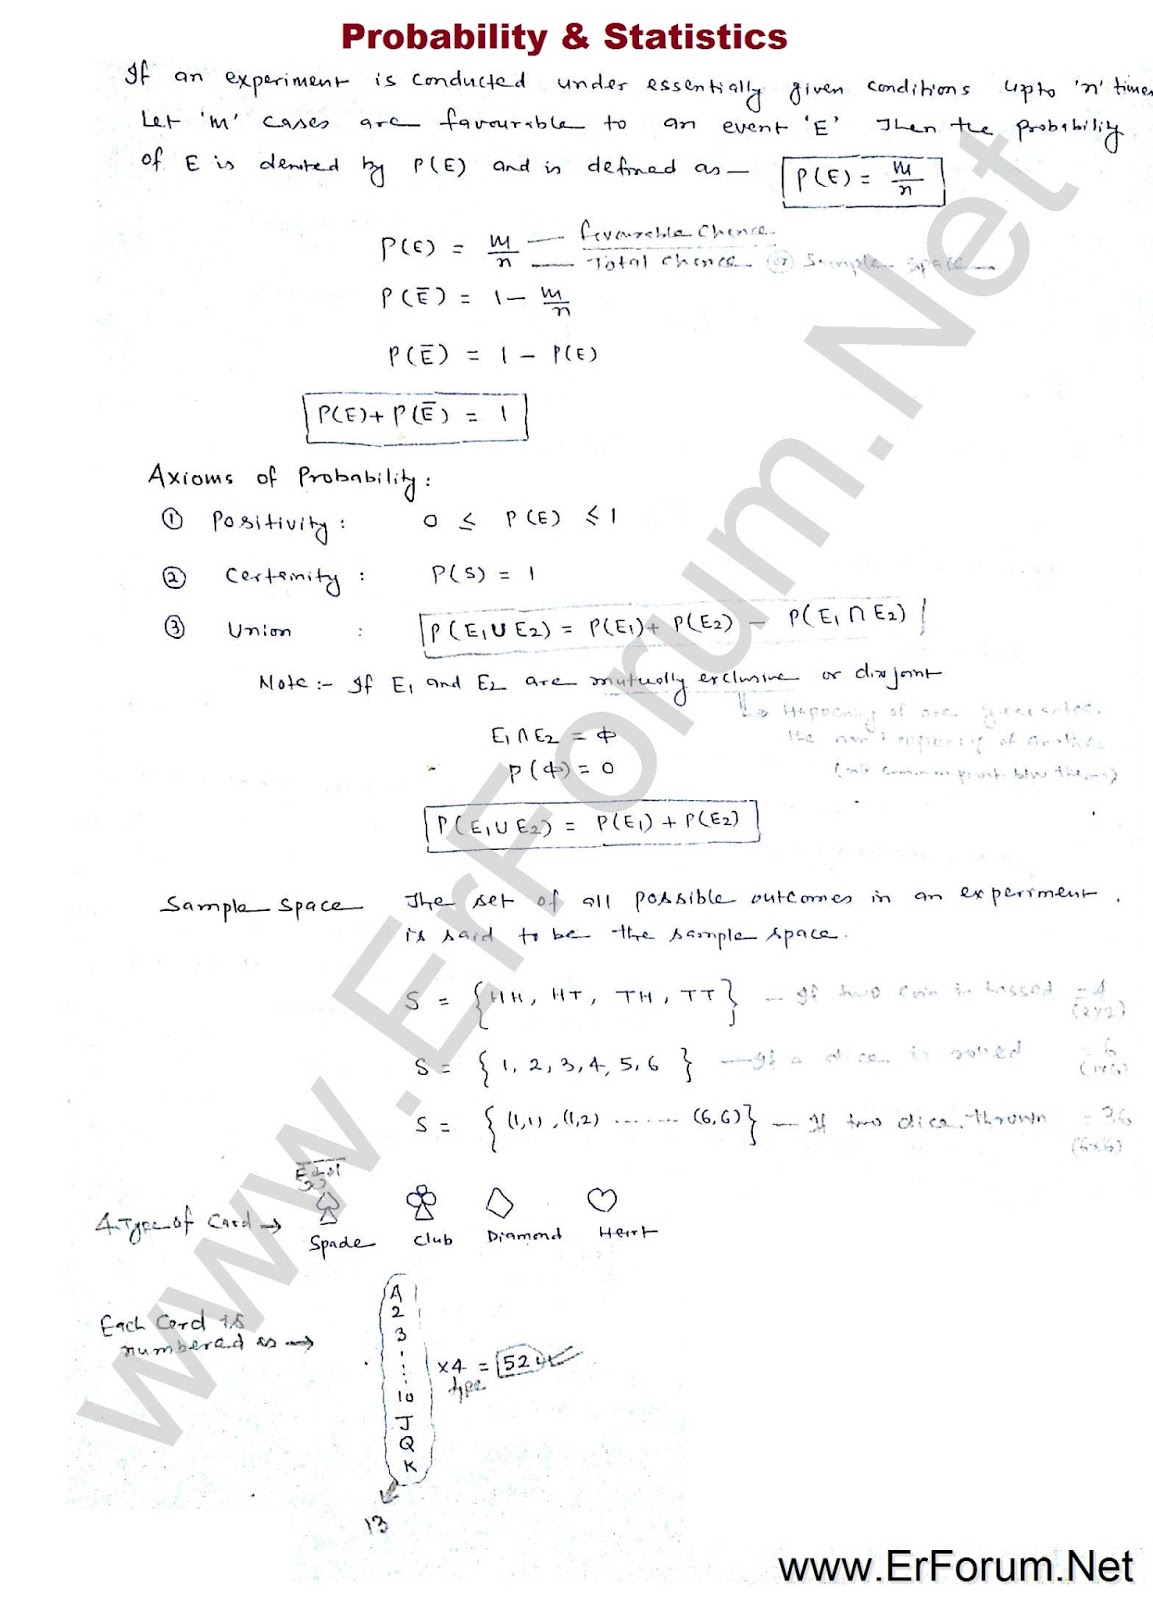 Probability & Statistics
If an experiment is conducted under essentially given conditions upto 'n' times
Let 'm' cases are favourable to an event 'E' Then the probability
of E is denoted by P(E) and is defined as — P(E) = m/n
P(E) = m/n — favourable chance / Total chance or Sample space
P(Ē) = 1 - m/n
P(Ē) = 1 - P(E)
P(E) + P(Ē) = 1
Axioms of Probability:
① Positivity : 0 ≤ P(E) ≤ 1
② Certainity : P(S) = 1
③ Union : P(E1 U E2) = P(E1) + P(E2) - P(E1 ∩ E2)
Note :- If E1 and E2 are mutually exclusive or disjoint
↳ Happening of one guarantee
the non happening of another
(no common point b/w them)
E1 ∩ E2 = Φ
P(Φ) = 0
P(E1 U E2) = P(E1) + P(E2)
Sample Space The set of all possible outcomes in an experiment.
is said to be the sample space.
S = {HH, HT, TH, TT} — If two coin is tossed = 4
(2x2)
S = {1, 2, 3, 4, 5, 6} — If a dice is rolled = 6
S = {(1,1), (1,2) ....... (6,6)} — If two dice thrown = 36
(6x6)
4 Type of Card →
Spade Club Diamond Heart
Each Cord is
numbered as →
A
2
3
10
J
Q
K
x4 = 52
type
13
www.ErForum.Net
www.ErForum.Net